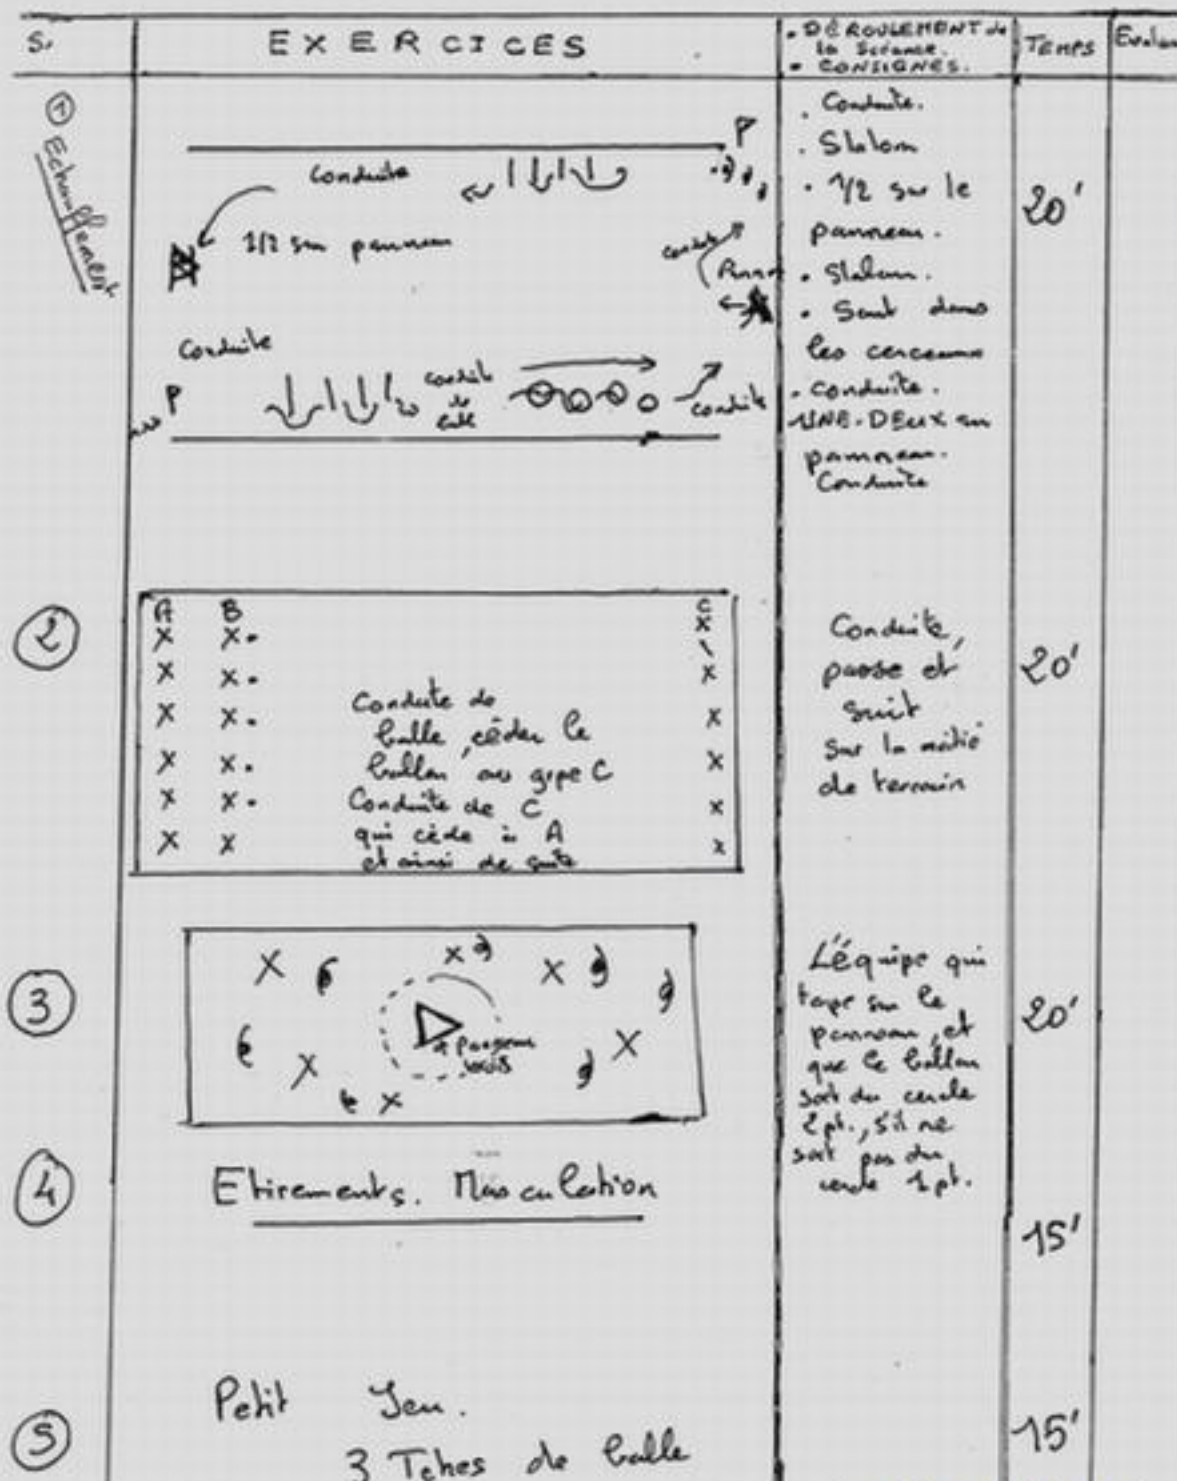 S.
EXERCICES
• DÉROULEMENT de
la Séance.
• CONSIGNES.
TEMPS
① Echauffement
P
Conduite
1/2 sur panneau
conduite
Conduite
P
conduite
de
balle
conduite
. Conduite.
. Slalom
. 1/2 sur le
panneau.
. Slalom.
. Saut dans
les cerceaux
. conduite.
UNE-DEUX sur
panneau.
Conduite
20'
②
A B C
X X. X
X X. X
X X. X
X X. X
X X. X
X X X
Conduite de
balle, céder le
ballon au grpe C
Conduite de C
qui cède à A
et ainsi de suite
Conduite,
passe et
suit
sur la moitié
de terrain
20'
③
X X X
X X X
panneau
bois
L'équipe qui
tape sur le
panneau, et
que le ballon
sort du cercle
2 pt., s'il ne
sort pas du
cercle 1 pt.
20'
④
Etirements. Musculation
15'
⑤
Petit Jeu.
3 Tches de balle
15'